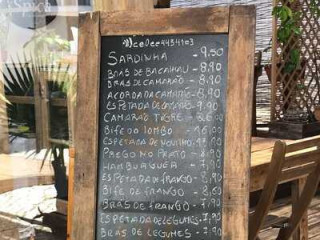 SARDINHA - 9,50
BRÁS DE BACALHAU - 8,90
BRAS DE CAMARÃO - 8,90
AÇORDA DE CAMARÃO - 9,90
ESPETADA DE - 9,90
CAMARÃO TIGRE -
BIFE DO LOMBO -
ESPETADA DE NOVILHO
PREGO NO PRATO - 8,90
HAMBURGUER - 7,90
ESPETADA DE FRANGO - 8,90
BIFE DE FRANGO - 8,50
BRAS DE FRANGO - 7,90
ESPETADA DE LEGUMES - 7,90
BRAS DE LEGUMES - 7,90